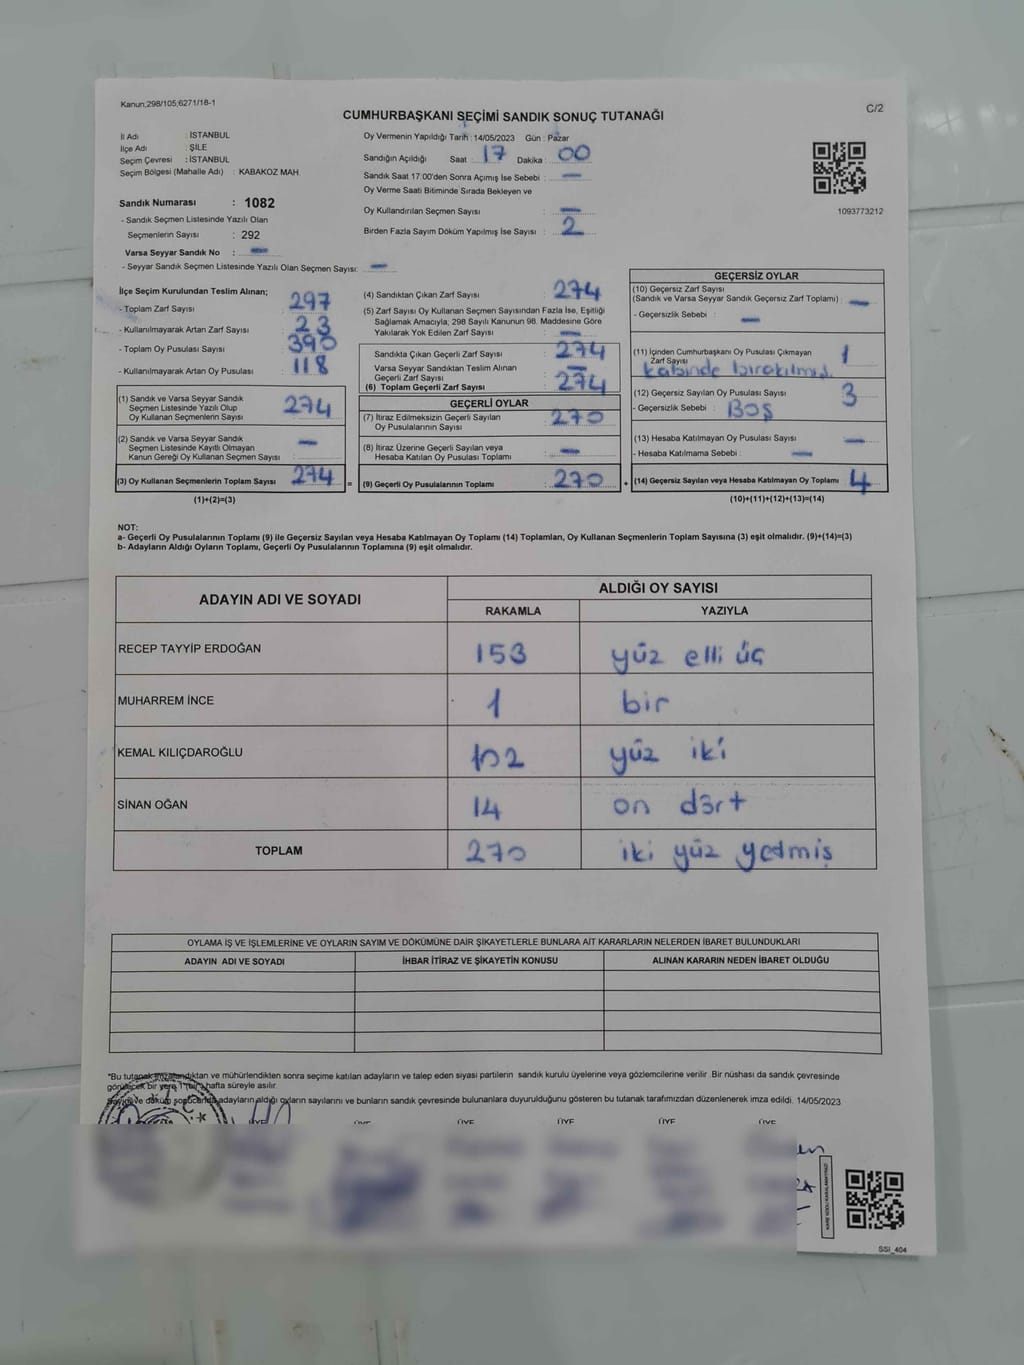 Kanun,298/105;6271/18-1
C/2
CUMHURBAŞKANI SEÇİMİ SANDIK SONUÇ TUTANAĞI
İl Adı : İSTANBUL
İlçe Adı : ŞİLE
Seçim Çevresi : İSTANBUL
Seçim Bölgesi (Mahalle Adı) : KABAKOZ MAH.
Sandık Numarası : 1082
- Sandık Seçmen Listesinde Yazılı Olan
Seçmenlerin Sayısı : 292
Varsa Seyyar Sandık No : —
- Seyyar Sandık Seçmen Listesinde Yazılı Olan Seçmen Sayısı: —
Oy Vermenin Yapıldığı Tarih : 14/05/2023 Gün : Pazar
Sandığın Açıldığı Saat : 17 Dakika : 00
Sandık Saat 17.00'den Sonra Açımış İse Sebebi : —
Oy Verme Saati Bitiminde Sırada Bekleyen ve
Oy Kullandırılan Seçmen Sayısı : —
Birden Fazla Sayım Döküm Yapılmış İse Sayısı : 2
1093773212
İlçe Seçim Kurulundan Teslim Alınan;
- Toplam Zarf Sayısı : 297
- Kullanılmayarak Artan Zarf Sayısı : 23
- Toplam Oy Pusulası Sayısı : 390
- Kullanılmayarak Artan Oy Pusulası : 118
(1) Sandık ve Varsa Seyyar Sandık
Seçmen Listesinde Yazılı Olup
Oy Kullanan Seçmenlerin Sayısı : 274
(2) Sandık ve Varsa Seyyar Sandık
Seçmen Listesinde Kayıtlı Olmayan
Kanun Gereği Oy Kullanan Seçmen Sayısı : —
(3) Oy Kullanan Seçmenlerin Toplam Sayısı : 274 =
(1)+(2)=(3)
(4) Sandıktan Çıkan Zarf Sayısı : 274
(5) Zarf Sayısı Oy Kullanan Seçmen Sayısından Fazla İse, Eşitliği
Sağlamak Amacıyla, 298 Sayılı Kanunun 98. Maddesine Göre
Yakılarak Yok Edilen Zarf Sayısı : —
Sandıkta Çıkan Geçerli Zarf Sayısı : 274
Varsa Seyyar Sandıktan Teslim Alınan
Geçerli Zarf Sayısı : —
(6) Toplam Geçerli Zarf Sayısı : 274
GEÇERLİ OYLAR
(7) İtiraz Edilmeksizin Geçerli Sayılan
Oy Pusulalarının Sayısı : 270
(8) İtiraz Üzerine Geçerli Sayılan veya
Hesaba Katılan Oy Pusulası Toplamı : —
(9) Geçerli Oy Pusulalarının Toplamı : 270 +
GEÇERSİZ OYLAR
(10) Geçersiz Zarf Sayısı
(Sandık ve Varsa Seyyar Sandık Geçersiz Zarf Toplamı) : —
- Geçersizlik Sebebi : —
(11) İçinden Cumhurbaşkanı Oy Pusulası Çıkmayan
Zarf Sayısı 1
kabinde bırakılmış.
(12) Geçersiz Sayılan Oy Pusulası Sayısı : 3
- Geçersizlik Sebebi : BOŞ
(13) Hesaba Katılmayan Oy Pusulası Sayısı : —
- Hesaba Katılmama Sebebi : —
(14) Geçersiz Sayılan veya Hesaba Katılmayan Oy Toplamı : 4
(10)+(11)+(12)+(13)=(14)
NOT:
a- Geçerli Oy Pusulalarının Toplamı (9) ile Geçersiz Sayılan veya Hesaba Katılmayan Oy Toplamı (14) Toplamları, Oy Kullanan Seçmenlerin Toplam Sayısına (3) eşit olmalıdır. (9)+(14)=(3)
b- Adayların Aldığı Oyların Toplamı, Geçerli Oy Pusulalarının Toplamına (9) eşit olmalıdır.
ADAYIN ADI VE SOYADI ALDIĞI OY SAYISI
RAKAMLA YAZIYLA
RECEP TAYYİP ERDOĞAN 153 yüz elli üç
MUHARREM İNCE 1 bir
KEMAL KILIÇDAROĞLU 102 yüz iki
SİNAN OĞAN 14 on dört
TOPLAM 270 iki yüz yetmiş
OYLAMA İŞ VE İŞLEMLERİNE VE OYLARIN SAYIM VE DÖKÜMÜNE DAİR ŞİKAYETLERLE BUNLARA AİT KARARLARIN NELERDEN İBARET BULUNDUKLARI
ADAYIN ADI VE SOYADI İHBAR İTİRAZ VE ŞİKAYETİN KONUSU ALINAN KARARIN NEDEN İBARET OLDUĞU
*Bu tutanak imzalandıktan ve mühürlendikten sonra seçime katılan adayların ve talep eden siyasi partilerin sandık kurulu üyelerine veya gözlemcilerine verilir .Bir nüshası da sandık çevresinde
görülecek bir yere 1 (bir) hafta süreyle asılır.
Sayım ve döküm sonucunda adayların aldığı oyların sayılarını ve bunların sandık çevresinde bulunanlara duyurulduğunu gösteren bu tutanak tarafımızdan düzenlenerek imza edildi. 14/05/2023
ÜYE ÜYE ÜYE ÜYE ÜYE ÜYE
SSI_404